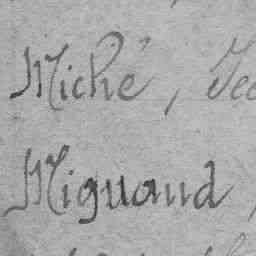 Miché, Jea
Miguaud,